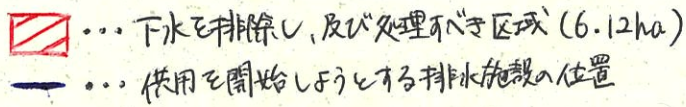 … 下水を排除し、及び処理すべき区域 (6.12ha)
… 供用を開始しようとする排水施設の位置